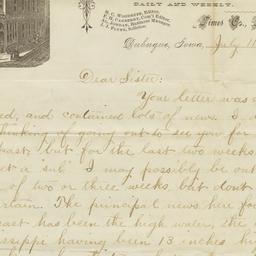 DAILY AND WEEKLY.
M. C. WOODRUFF, Editor.
Times Co.
Dubuque, Iowa, July 11
Dear Sister:
Your letter was
ed, and contained lots of news. I
thinking of going out to see you for
past, but for the last two weeks
get a sub. I may possibly be out
of two or three weeks, but dont
certain. The principal news here fo
past has been the high water, the
ssissippi having been 13 inches hi